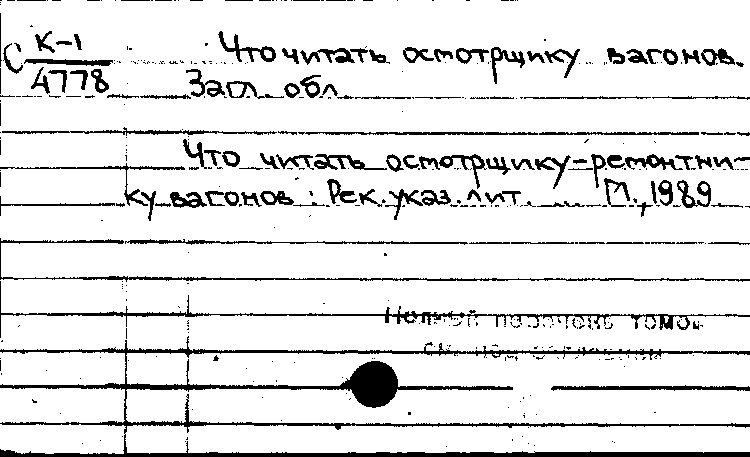 С К-1 Что читать осмотрщику вагонов.
4778 Загл. обл.
Что читать осмотрщику-ремонтни-
ку вагонов : Рек. указ. лит. ... М., 1989
Полный перечень томов
см. под заглавием